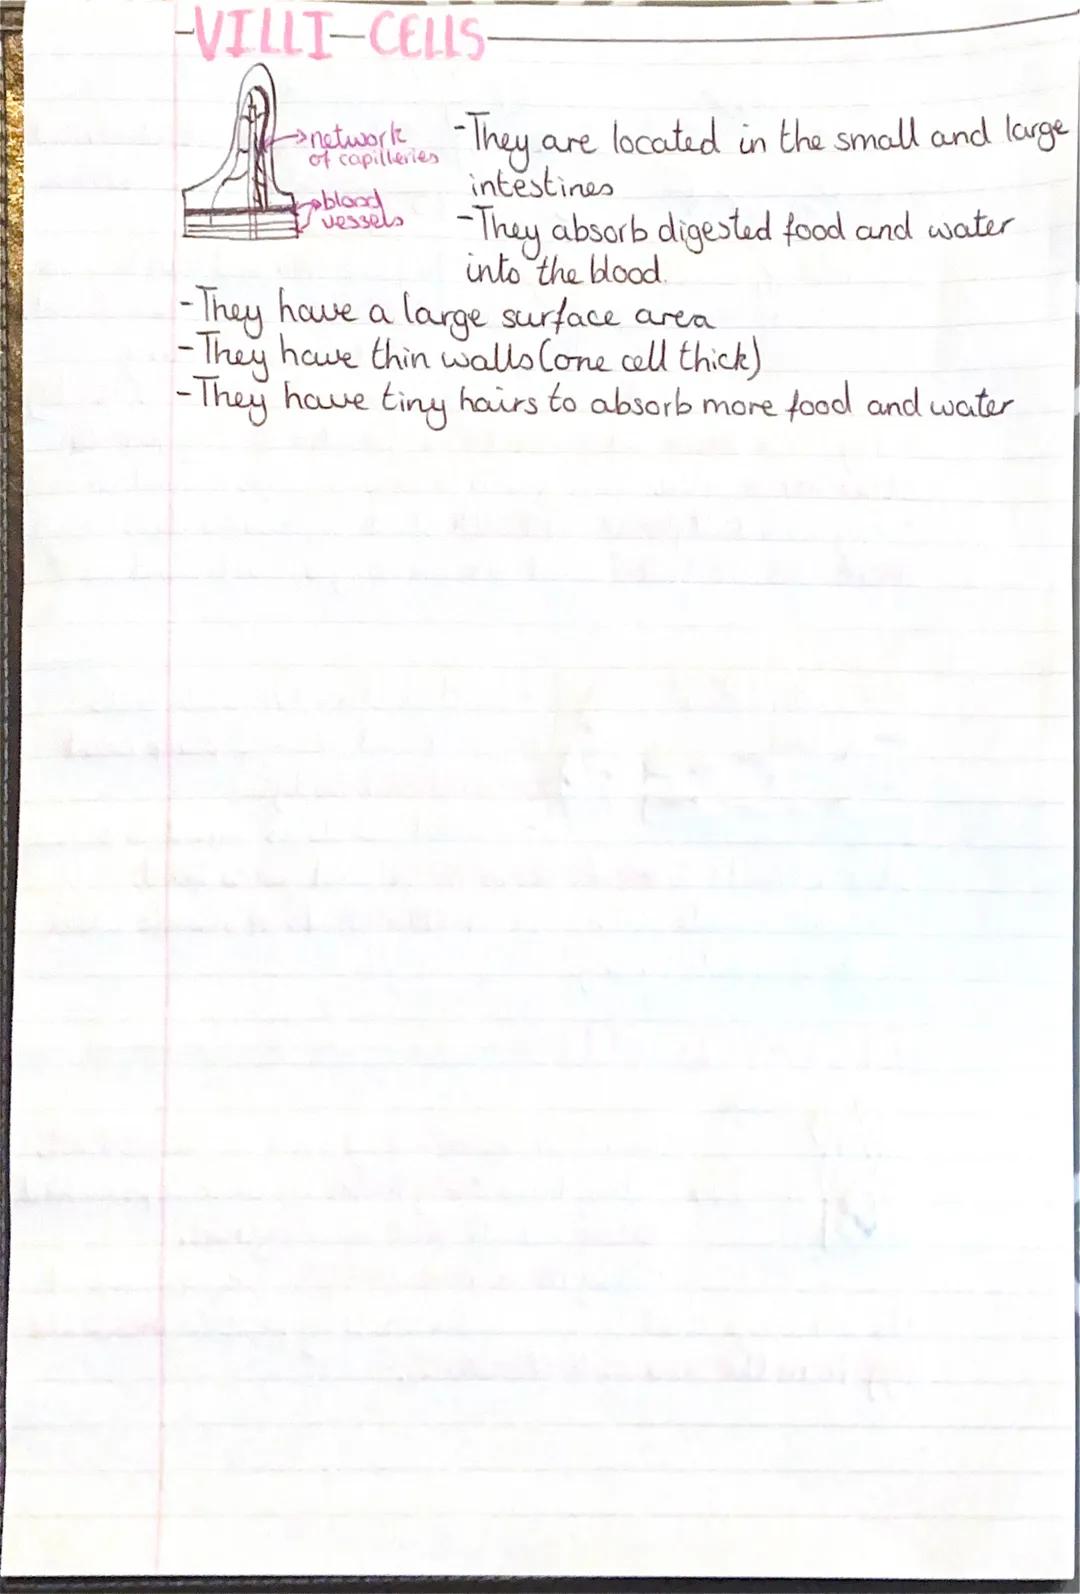 -VILLI-CELLS-
→network
of capilleries
→blood
vessels
-They are located in the small and large
intestines
-They absorb digested food and water
into the blood.
-They have a large surface area
-They have thin walls (one cell thick)
-They have tiny hairs to absorb more food and water